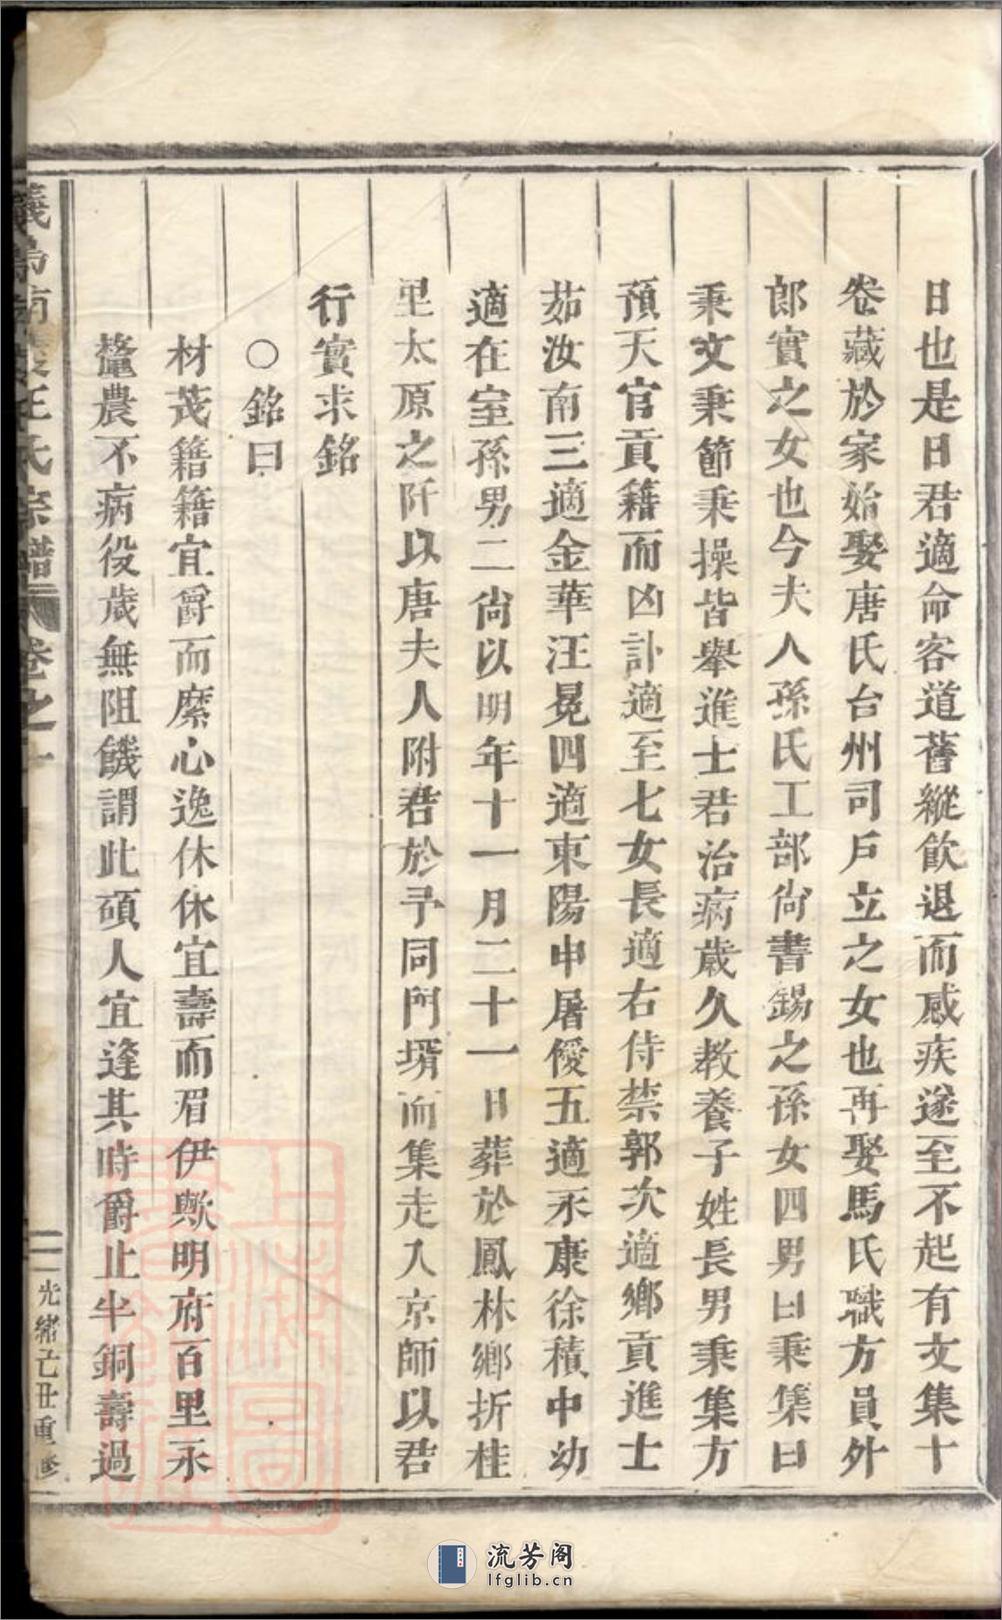 日也是日君適命客道舊縱飲退而感疾遂至不起有文集十
卷藏於家始娶唐氏台州司戶立之女也再娶馬氏職方員外
郎實之女也今夫人孫氏工部尙書錫之孫女四男曰秉集曰
秉文秉節秉操皆舉進士君治病歲久教養子姓長男秉集方
預天官貢籍而凶訃適至七女長適右侍禁郭次適鄉貢進士
茹汝南三適金華汪冕四適東陽申屠優五適永康徐積中幼
適在室孫男二尙以明年十一月二十一日葬於鳳林鄉折桂
里太原之阡以唐夫人附君於予同門壻而集走入京師以君
行實求銘
○銘曰
材茂籍籍宜爵而縻心逸休休宜壽而眉伊歟明府百里承
釐農不病役歲無阻饑謂此碩人宜逢其時爵止半銅壽過
義烏南王氏宗譜 卷之十
二 光緒乙丑重修
上海圖書館藏
流芳阁
lfglib.cn